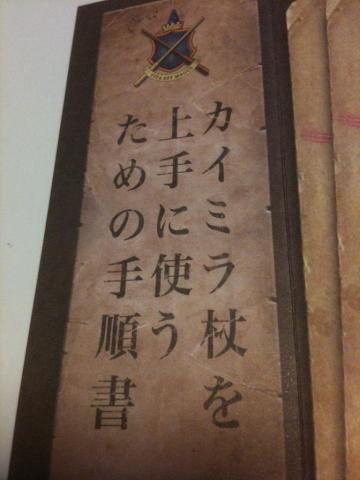 カイミラ杖を
上手に使う
ための手順書